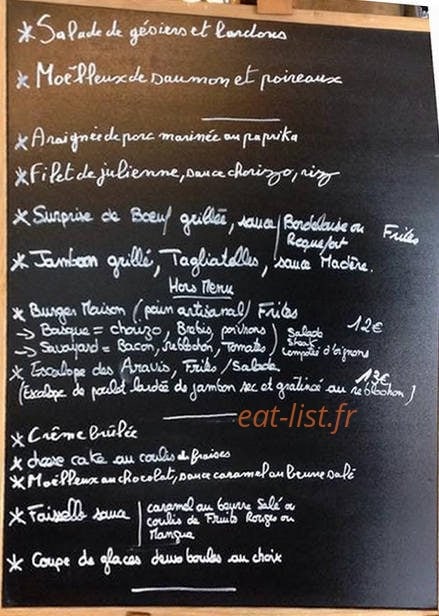 * Salade de gésiers et lardons
* Moëlleux de saumon et poireaux
* Araignée de porc marinée au paprika
* Filet de julienne, sauce chorizo, riz
* Surprise de Bœuf grillée, sauce | Bordelaise ou Roquefort Frites
* Jambon grillé, Tagliatelles, sauce Madère.
Hors Menu
* Burger Maison (pain artisanal) Frites 12€
-> Basque = chorizo, Brebis, poivrons
-> Savoyard = Bacon, reblochon, Tomates
) Salade
Steak
compotée d'oignons
* Escalope des Aravis, Frites / Salade 12€
(Escalope de poulet lardée de jambon sec et gratinée au reblochon)
eat-list.fr
* Crème brûlée
* cheese cake au coulis de fraises
* Moëlleux au chocolat, sauce caramel au beurre salé
* Faisselle sauce | caramel au beurre Salé ou
coulis de Fruits Rouges ou
Mangue
* Coupe de glaces deux boules au choix